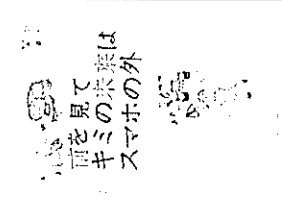 前を見て
キミの未来は
スマホの外